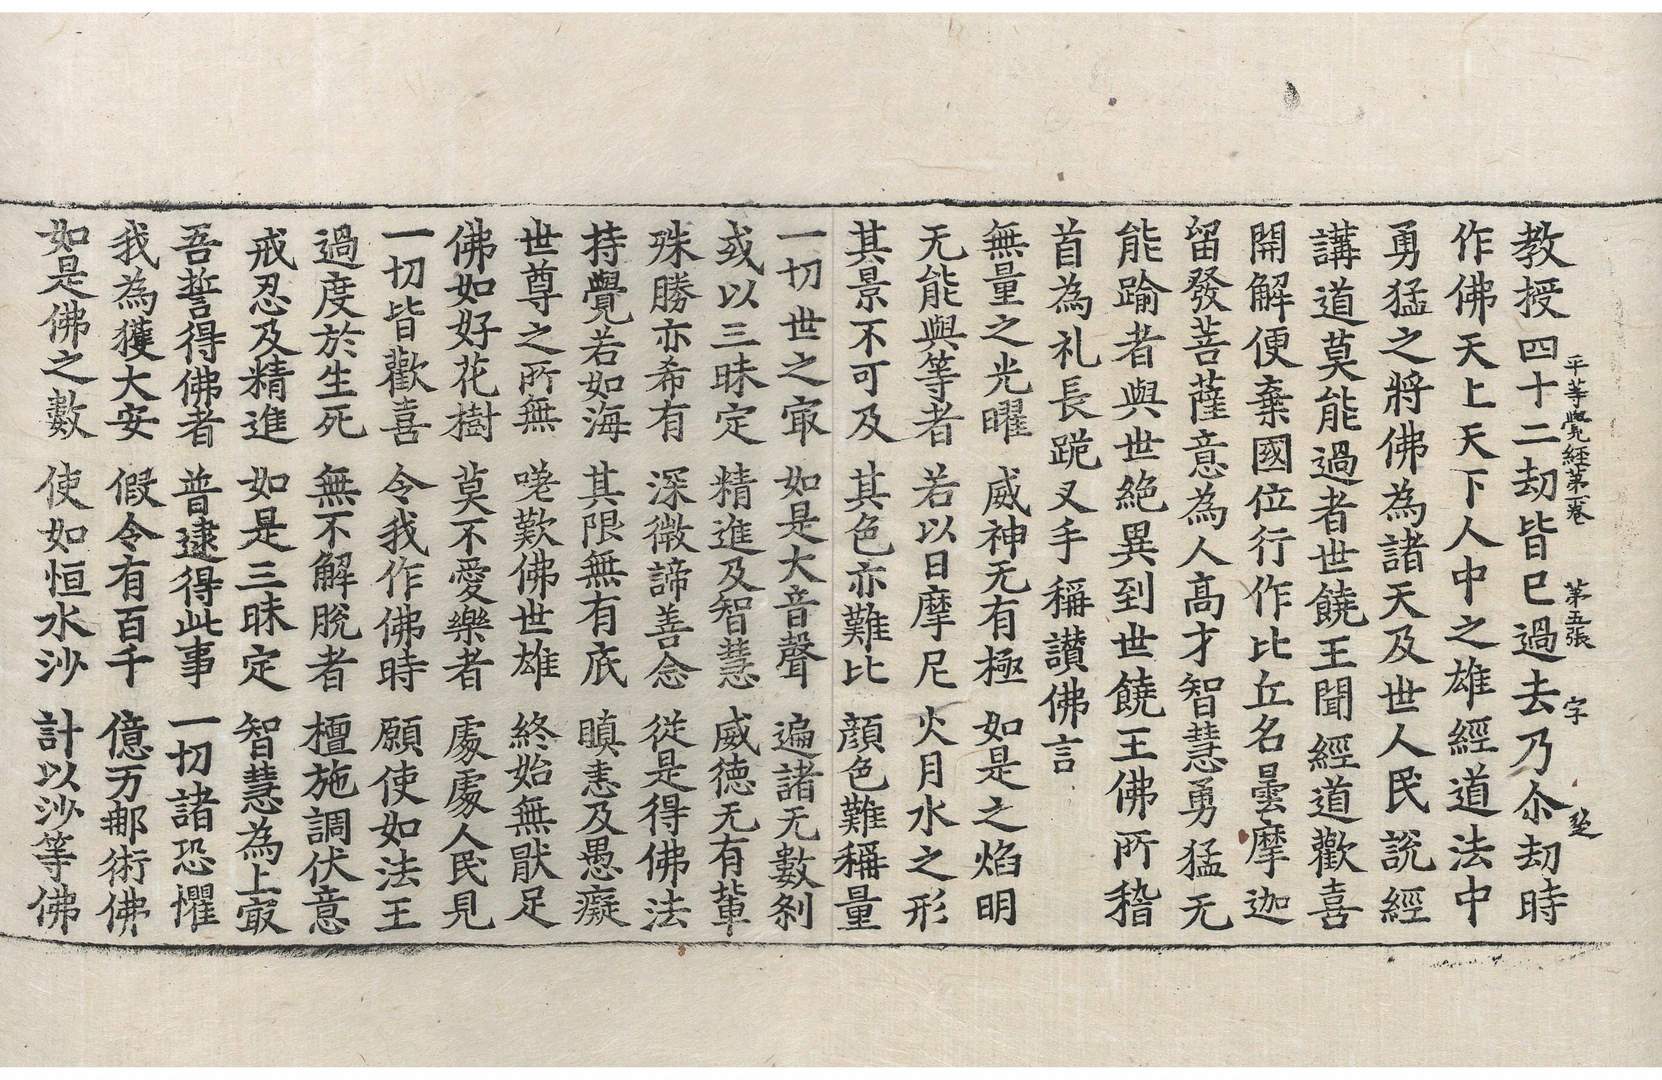 平等覺經第一卷　第五張　字
教授四十二劫皆已過去乃尒劫時
作佛天上天下人中之雄經道法中
勇猛之將佛為諸天及世人民說經
講道莫能過者世饒王聞經道歡喜
開解便棄國位行作比丘名曇摩迦
留發菩薩意為人高才智慧勇猛无
能踰者與世絶異到世饒王佛所稽
首為礼長跪叉手稱讃佛言
無量之光曜　威神无有極　如是之焰明
无能與等者　若以日摩尼　火月水之形
其景不可及　其色亦難比　顔色難稱量
一切世之㝡　如是大音聲　遍諸无數刹
或以三昧定　精進及智慧　威德无有輩
殊勝亦希有　深微諦善念　從是得佛法
持覺若如海　其限無有底　瞋恚及愚癡
世尊之所無　嘆歎佛世雄　終始無猒足
佛如好花樹　莫不愛樂者　處處人民見
一切皆歡喜　令我作佛時　願使如法王
過度於生死　無不解脫者　檀施調伏意
戒忍及精進　如是三昧定　智慧為上㝡
吾誓得佛者　普逮得此事　一切諸恐懼
我為獲大安　假令有百千　億万那術佛
如是佛之數　使如恒水沙　計以沙等佛